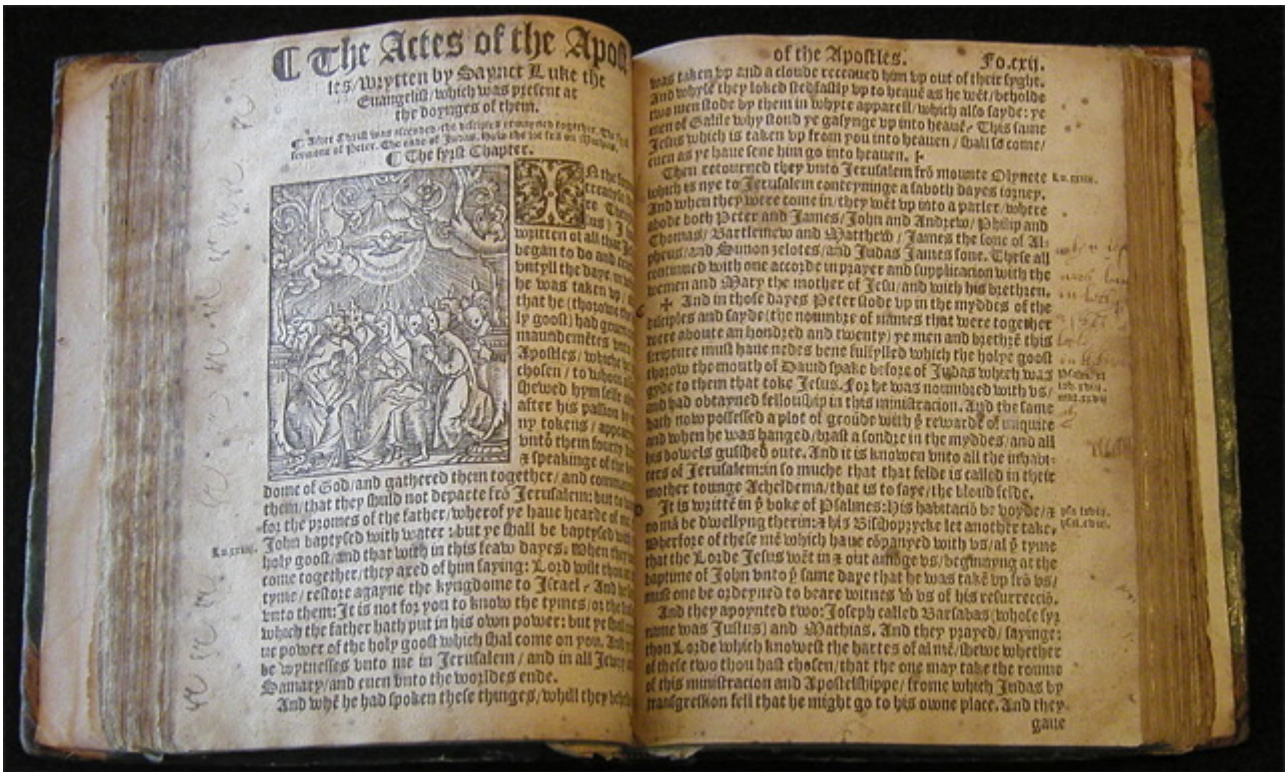 ¶ The Actes of the Apost
les/wrytten by Saynct Luke the
Euangelist/which was present at
the doynges of them.
¶ After Christ was ascended the disciples
sermone of Peter. The ende of Judas.
¶ The fyrst Chapter.
IN the
written of all that
began to do and
vntyll the daye
he was taken vp
that he (thorowe
ly goost) had
maundemētes
Apostles/
chosen/to whom
shewed hym selfe
after his passion by
ny tokens/
vntō them fourty
⁊ speakinge of the
dome of God/and gathered them together/and
them/that they shuld not departe frō Jerusalem: but to
for the promes of the father/wherof ye haue hearde of
Lu.xxiiij.
John baptysed with water: but ye shall be baptysed
holy goost/and that with in this feaw dayes. When they
come together/they axed of him saying: Lord wilt thou at
tyme/restore agayne the kyngdome to Israel? And he
vnto them: It is not for you to know the tymes/or the
which the father hath put in his own power: but ye shall
ue power of the holy goost which shal come on you. And
be wytnesses vnto me in Jerusalem/and in all Jewry
Samary/and euen vnto the worldes ende.
And whē he had spoken these thinges/whill they behelde
of the Apostles.
Fo.cxij.
was taken vp and a cloude receaued him vp out of their syght.
And whyle they loked stedfastly vp to heauē as he wēt/beholde
two men stode by them in whyte apparell/which also sayde: ye
men of Galile why stond ye gasynge vp into heauē? This same
Jesus which is taken vp from you into heauen/shall so come/
euen as ye haue sene him go into heauen.
Then retourned they vnto Jerusalem frō mounte Olyuete
which is nye to Jerusalem conteyninge a saboth dayes iorney.
And when they were come in/they wēt vp into a parler/where
abode both Peter and James/John and Andrew/Philip and
Thomas/Bartlemew and Matthew/James the sone of Al-
pheus/and Simon zelotes/and Judas James sone. These all
continued with one accorde in prayer and supplicacion with the
wemen and Mary the mother of Jesu/and with his brethren.
✠ And in those dayes Peter stode vp in the myddes of the
disciples and sayde (the noumbre of names that were together
were aboute an hondred and twenty) ye men and brethrē this
scripture must haue nedes bene fulfylled which the holye goost
thorow the mouth of Dauid spake before of Judas which was
gyde to them that toke Jesus. For he was noumbred with vs/
and had obtayned fellouship in this ministracion. And the same
hath now possessed a plot of groūde with ẏ rewarde of iniquite
and when he was hanged/brast a sondre in the myddes/and all
his bowels gusshed oute. And it is knowen vnto all the inhabi-
ters of Jerusalem: in so muche that that felde is called in their
mother tounge Acheldema/that is to saye/the bloud felde.
It is writtē in ẏ boke of Psalmes: his habitaciō be voyde/⁊
no mā be dwellyng therin: ⁊ his Bisshoprycke let another take.
Wherfore of these mē which haue cōpanyed with vs/al ẏ tyme
that the Lorde Jesus wēt in ⁊ out amōge vs/beginnyng at the
baptime of John vnto ẏ same daye that he was takē vp frō vs/
must one be ordeyned to beare witnes wͭ vs of his resurrecciō.
And they apoynted two: Joseph called Barsabas (whose syr
name was Justus) and Mathias. And they prayed/sayinge:
thou Lorde which knowest the hartes of al mē/shewe whether
of these two thou hast chosen/that the one may take the roume
of this ministracion and Apostelshippe/frome which Judas by
transgression fell that he might go to his owne place. And they
gaue